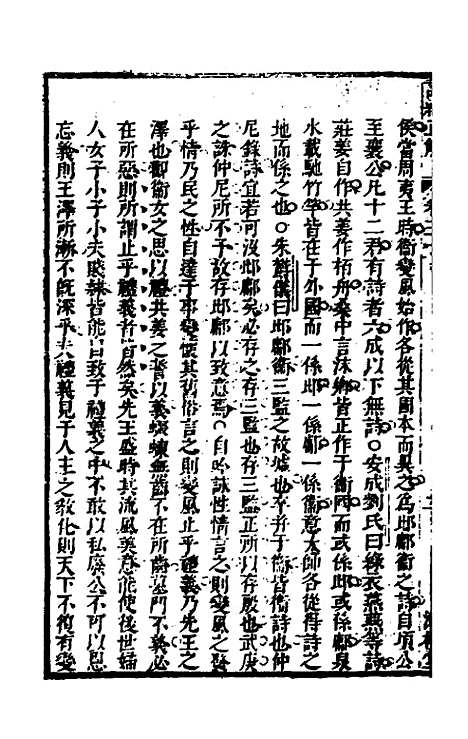 侯當周夷王時衛變風始作各從其國本而異之爲邶鄘衛之詩自頃公
至襄公凡十二君有詩者六成以下無詩○安成劉氏曰綠衣燕燕等詩
莊姜自作共姜作柏舟桑中言沬鄉皆正作于衛而或係邶或係鄘泉
水載馳竹竿皆在于外國而一係邶一係鄘一係衛意太師各從衛詩之
地而係之也○朱鬱儀曰邶鄘衛三監之故墟也卒并于衛皆衛詩也仲
尼錄詩宜若可沒邶鄘矣必存之存三監也存三監正所以存殷也武庚
之誅仲尼所不予故存邶鄘以致意焉○自吟詠性情言之則變風之發
乎情乃民之性自達于耶變懷其舊俗言之則變風止乎禮義乃先王之
澤也卽衛女之思以禮共姜之誓以義蝃蝀無齒不在所齒墓門不義必
在所惡則所謂止乎禮義者皆然矣先王盛時其流風美意能使後世婦
人女子小子小夫賤隸皆能自致于禮義之中不敢以私廢公不可以恩
忘義則王澤所漸不旣深乎夫禮義見于人主之敎化則天下不復有變